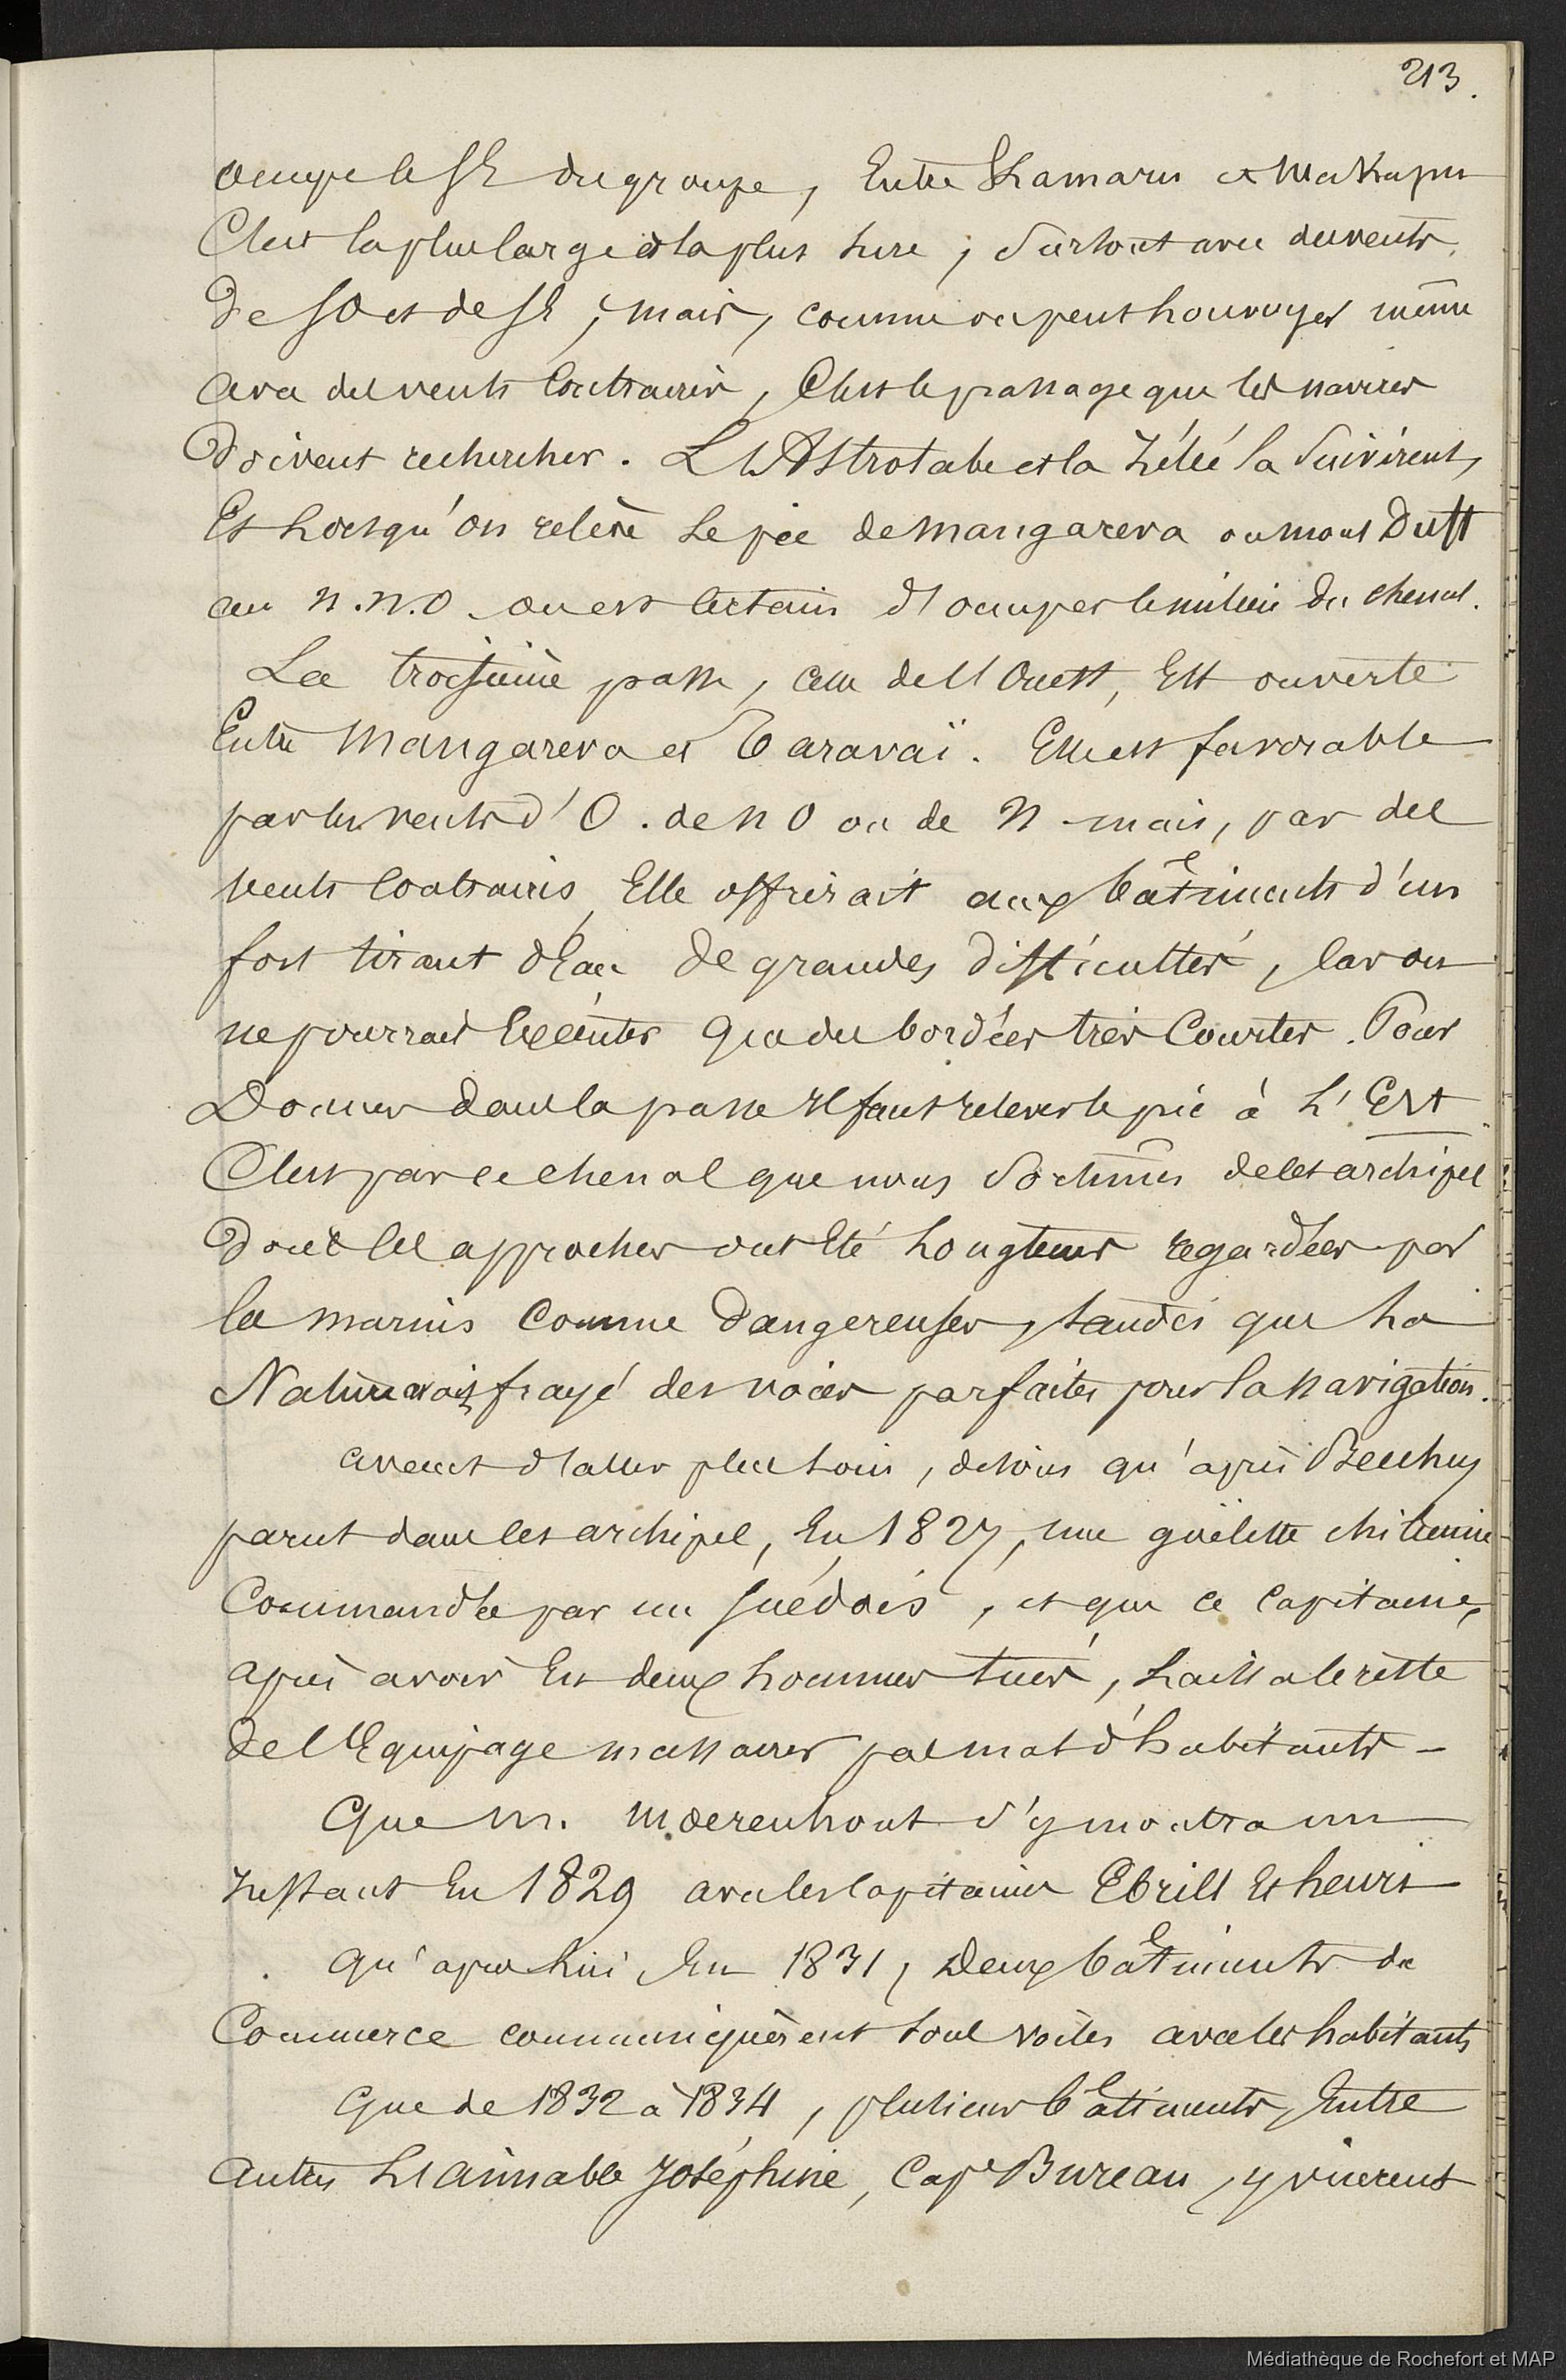 213.
occupe le SE du groupe, Entre Kamaru et Makapu
C'est la plus large et la plus sure, surtout avec des vents
De SO et de SE ; mais, comme on peut louvoyer même
avec des vents Contraires, C'est le passage que les navires
Doivent rechercher. L'Astrolabe et la Zélée la suivirent,
Et Lorsqu'on relève Le pic de Mangareva ou mont Duff
au N.N.O. on est certain d'occuper le milieu du chenal.
La troisième passe, celle de l'Ouest, Est ouverte
Entre Mangareva et Taravaï. Elle est favorable
par les vents d'O. de NO ou de N mais, par des
vents Contraires, Elle offrirait aux bâtiments d'un
fort tirant d'Eau De grandes difficultés, Car on
ne pourrait Exécuter que des bordées très Courtes. Pour
Donner dans la passe Il faut relever le pic à L'Est.
C'est par ce chenal que nous Sortîmes de cet archipel
Dont les approches ont Eté Longtems regardées par
les marins Comme Dangereuses, tandis que La
Nature avait frayé des voies parfaites pour la navigation.
avant d'aller plus Loin, disons qu'après Beechey
parut dans cet archipel, En 1827, une goëlette chilienne
Commandée par un Suédois, et que ce Capitaine,
après avoir Eu deux hommes tués, Laissa le reste
de l'Equipage massacrer pas mal d'habitants -
Que M. Moerenhout s'y montra un
Instant En 1829 avec les Capitaines Ebrill Et henri
qu'après Lui En 1831, Deux bâtiments de
Commerce communiquèrent sous voiles avec les habitants
Que de 1832 à 1834, plusieurs bâtiments, Entre
autres L'aimable Joséphine, Cape Bureau, y vinrent
Médiathèque de Rochefort et MAP